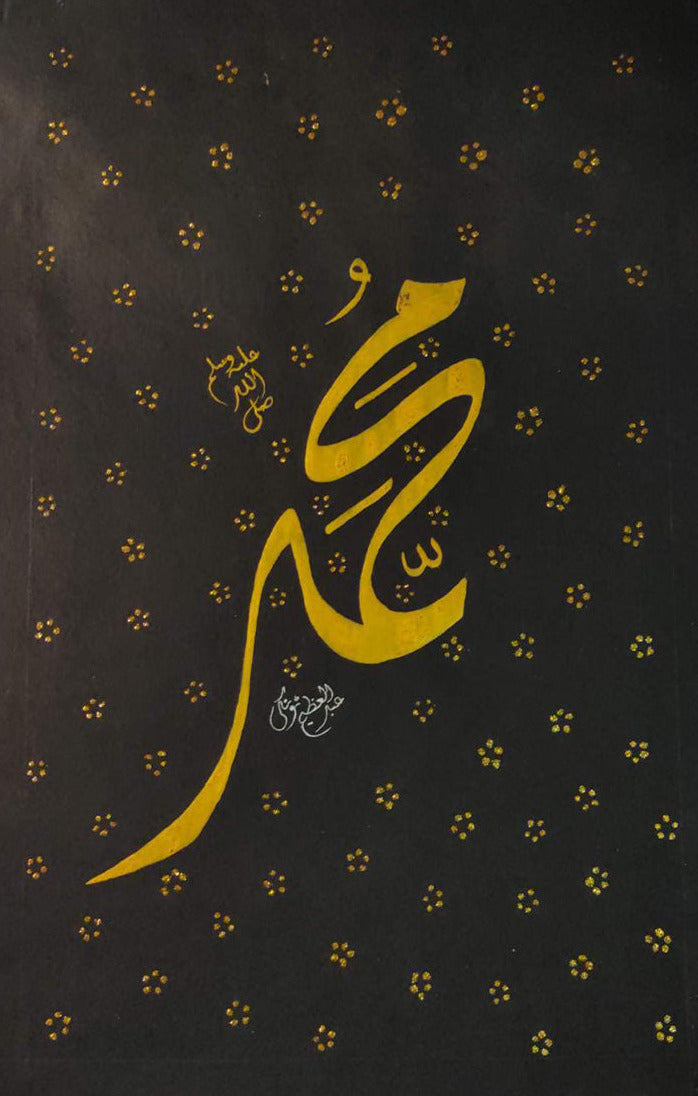 مُحَمَّد
صلى الله عليه وسلم
عبد العظيم